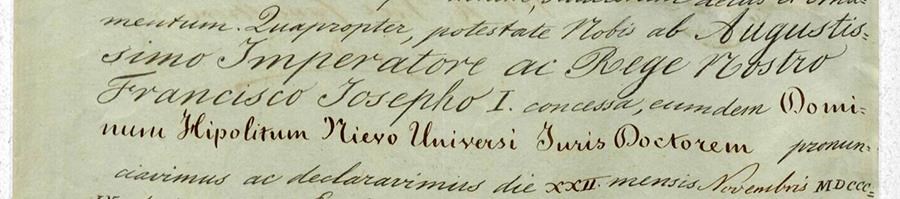 decus et orna-
mentum. Quapropter, potestate Nobis ab Augustis=
simo Imperatore ac Rege Nostro
Francisco Josepho I. concessa, eumdem Domi-
num Hipolitum Nievo Universi Juris Doctorem pronun-
ciavimus ac declaravimus die XXII. mensis Novembris MDCCC=